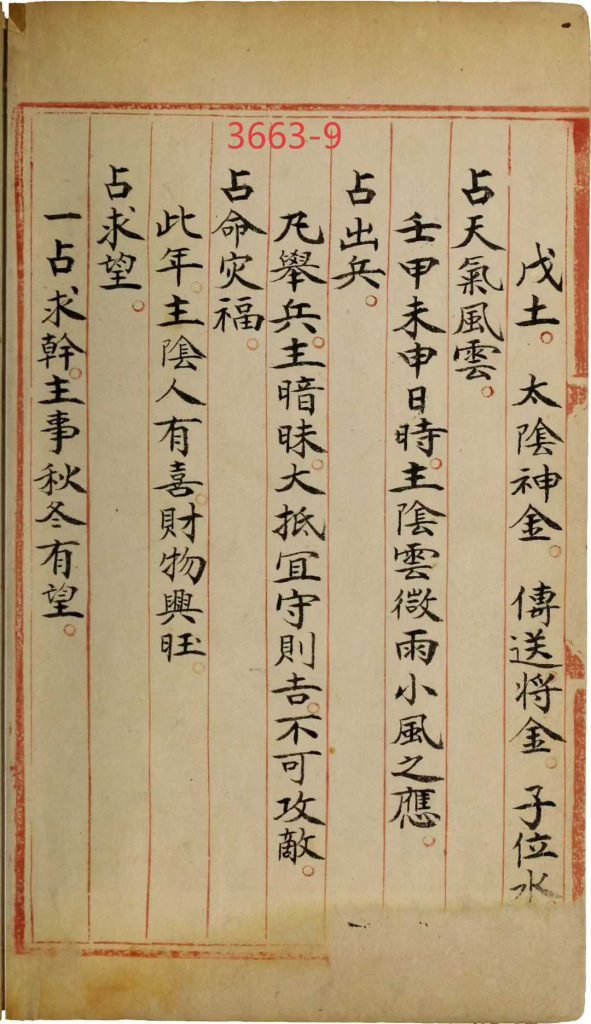 3663-9
戊土。 太陰神金。 傳送將金。 子位水
占天氣風雲。
壬甲未申日時。主陰雲微雨小風之應。
占出兵。
凡舉兵。主暗昧。大抵宜守則吉。不可攻敵。
占命灾福。
此年。主陰人有喜。財物興旺。
占求望。
一占求幹。主事秋冬有望。